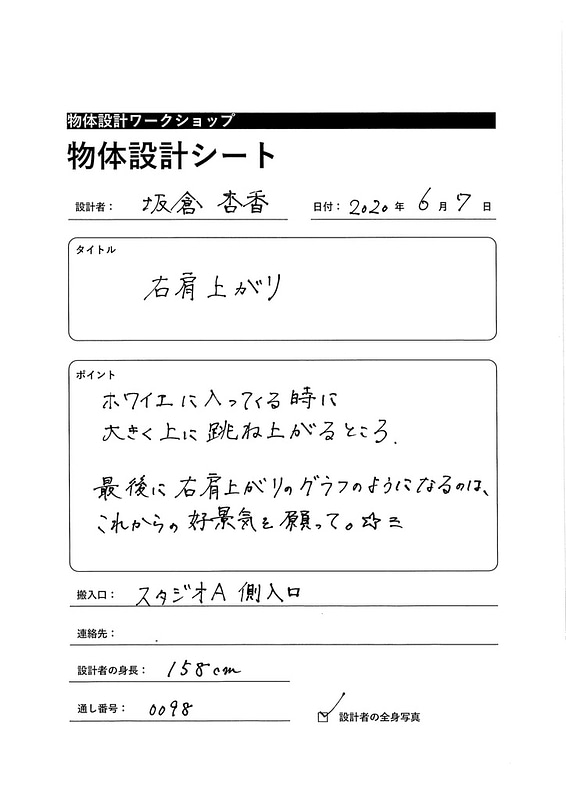 物体設計ワークショップ
物体設計シート
設計者： 坂倉 杏香 日付： 2020 年 6 月 7 日
タイトル
右肩上がり
ポイント
ホワイエに入ってくる時に
大きく上に跳ね上がるところ.
最後に右肩上がりのグラフのようになるのは、
これからの好景気を願って。☆ミ
搬入口： スタジオA 側入口
連絡先：
設計者の身長： 158cm
通し番号： 0098
☑ 設計者の全身写真